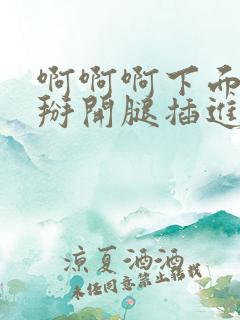 啊啊啊下面
掰開腿插進
涼夏酒酒
未经同意禁止转载